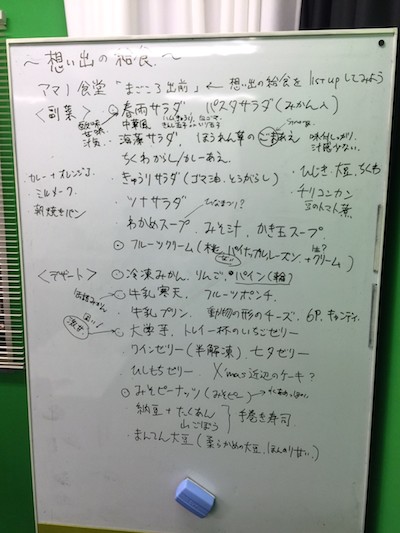 〜想い出の給食〜
アマノ食堂 "まごころ出前" ← 想い出の給食を list up してみよう
〈副菜〉 ○春雨サラダ パスタサラダ(みかん入)
酸味 甘味 中華風 きゅうり
海藻サラダ ほうれん草のごまあえ 味付しっかり、汁気少ない。
ちくわからしあえ
カレー+オレンジ
・ミルメーク
・きゅうりサラダ(ゴマ油、とうがらし) ・ひじき・大豆、ちくわ
・チリコンカン
豆のトマト煮
朝焼きパン ・ツナサラダ
わかめスープ みそ汁 かき玉スープ
○フルーツクリーム(桃、パイナップル、レーズン+クリーム)
〈デザート〉 ○冷凍みかん、りんご、パイン(輪)
○牛乳寒天 フルーツポンチ
・牛乳プリン、動物の形のチーズ、6P、キャンディ
○大学芋、トレイ一杯のいちごゼリー
ワインゼリー(半解凍) 七夕ゼリー
・ひしもちゼリー Xmas近辺のケーキ?
○みそピーナッツ(みそピー)
納豆+たくあん 手巻き寿司
山ごぼう
・まんてん大豆(柔らかめの大豆、ほんのり甘い)